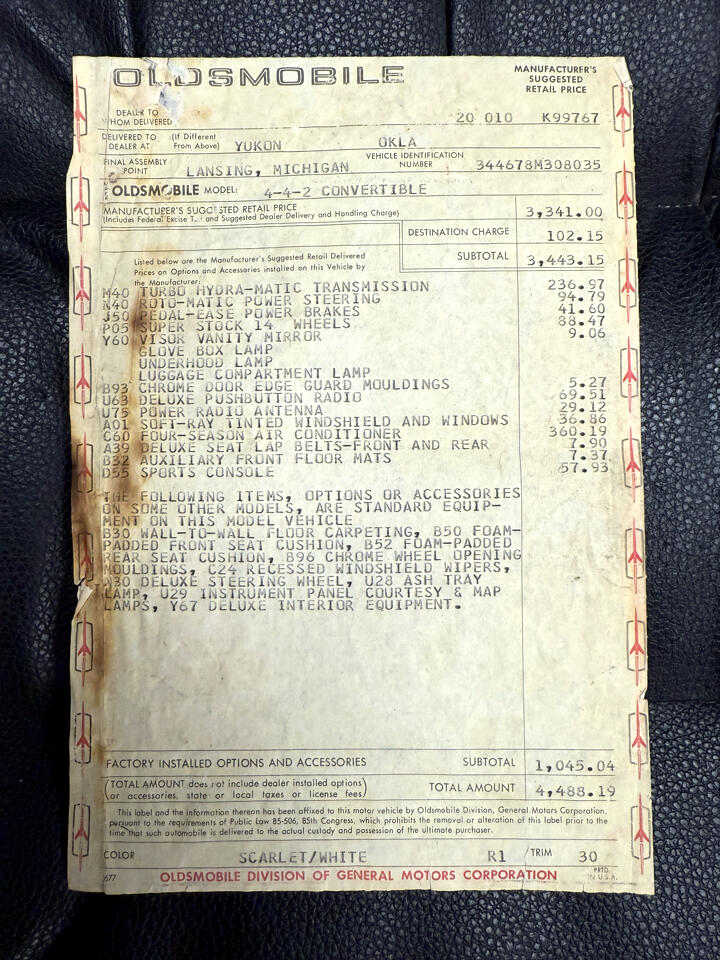 OLDSMOBILE
MANUFACTURER'S
SUGGESTED
RETAIL PRICE
DEALER TO
WHOM DELIVERED
20 010 K99767
DELIVERED TO (If Different
DEALER AT From Above) YUKON OKLA
FINAL ASSEMBLY
POINT LANSING, MICHIGAN VEHICLE IDENTIFICATION
NUMBER 344678M308035
OLDSMOBILE MODEL: 4-4-2 CONVERTIBLE
MANUFACTURER'S SUGGESTED RETAIL PRICE 3,341.00
(Includes Federal Excise T.. and Suggested Dealer Delivery and Handling Charge)
DESTINATION CHARGE 102.15
SUBTOTAL 3,443.15
Listed below are the Manufacturer's Suggested Retail Delivered
Prices on Options and Accessories installed on this Vehicle by
the Manufacturer:
M40 TURBO HYDRA-MATIC TRANSMISSION 236.97
N40 ROTO-MATIC POWER STEERING 94.79
J50 PEDAL-EASE POWER BRAKES 41.60
P05 SUPER STOCK 14 WHEELS 88.47
Y60 VISOR VANITY MIRROR 9.06
GLOVE BOX LAMP
UNDERHOOD LAMP
LUGGAGE COMPARTMENT LAMP
B93 CHROME DOOR EDGE GUARD MOULDINGS 5.27
U63 DELUXE PUSHBUTTON RADIO 69.51
U75 POWER RADIO ANTENNA 29.12
A01 SOFT-RAY TINTED WINDSHIELD AND WINDOWS 36.86
C60 FOUR-SEASON AIR CONDITIONER 360.19
A39 DELUXE SEAT LAP BELTS-FRONT AND REAR 7.90
B32 AUXILIARY FRONT FLOOR MATS 7.37
D55 SPORTS CONSOLE 57.93
THE FOLLOWING ITEMS, OPTIONS OR ACCESSORIES
ON SOME OTHER MODELS, ARE STANDARD EQUIP-
MENT ON THIS MODEL VEHICLE
B30 WALL-TO-WALL FLOOR CARPETING, B50 FOAM-
PADDED FRONT SEAT CUSHION, B52 FOAM-PADDED
REAR SEAT CUSHION, B96 CHROME WHEEL OPENING
MOULDINGS, U24 RECESSED WINDSHIELD WIPERS,
N30 DELUXE STEERING WHEEL, U28 ASH TRAY
LAMP, U29 INSTRUMENT PANEL COURTESY & MAP
LAMPS, Y67 DELUXE INTERIOR EQUIPMENT.
FACTORY INSTALLED OPTIONS AND ACCESSORIES SUBTOTAL 1,045.04
(TOTAL AMOUNT does not include dealer installed options)
(or accessories, state or local taxes or license fees) TOTAL AMOUNT 4,488.19
This label and the information thereon has been affixed to this motor vehicle by Oldsmobile Division, General Motors Corporation,
pursuant to the requirements of Public Law 85-506, 85th Congress, which prohibits the removal or alteration of this label prior to the
time that such automobile is delivered to the actual custody and possession of the ultimate purchaser.
COLOR SCARLET/WHITE R1 TRIM 30
677 OLDSMOBILE DIVISION OF GENERAL MOTORS CORPORATION PRTD.
IN U.S.A.